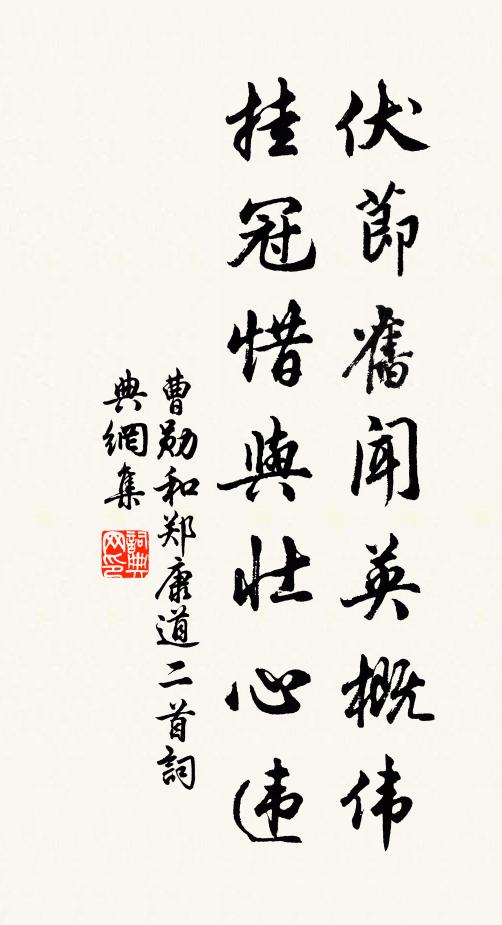 伏節舊聞英概伟
挂冠惜與壯心违
曹勋和郑康道二首詞
典網集
詞典网印